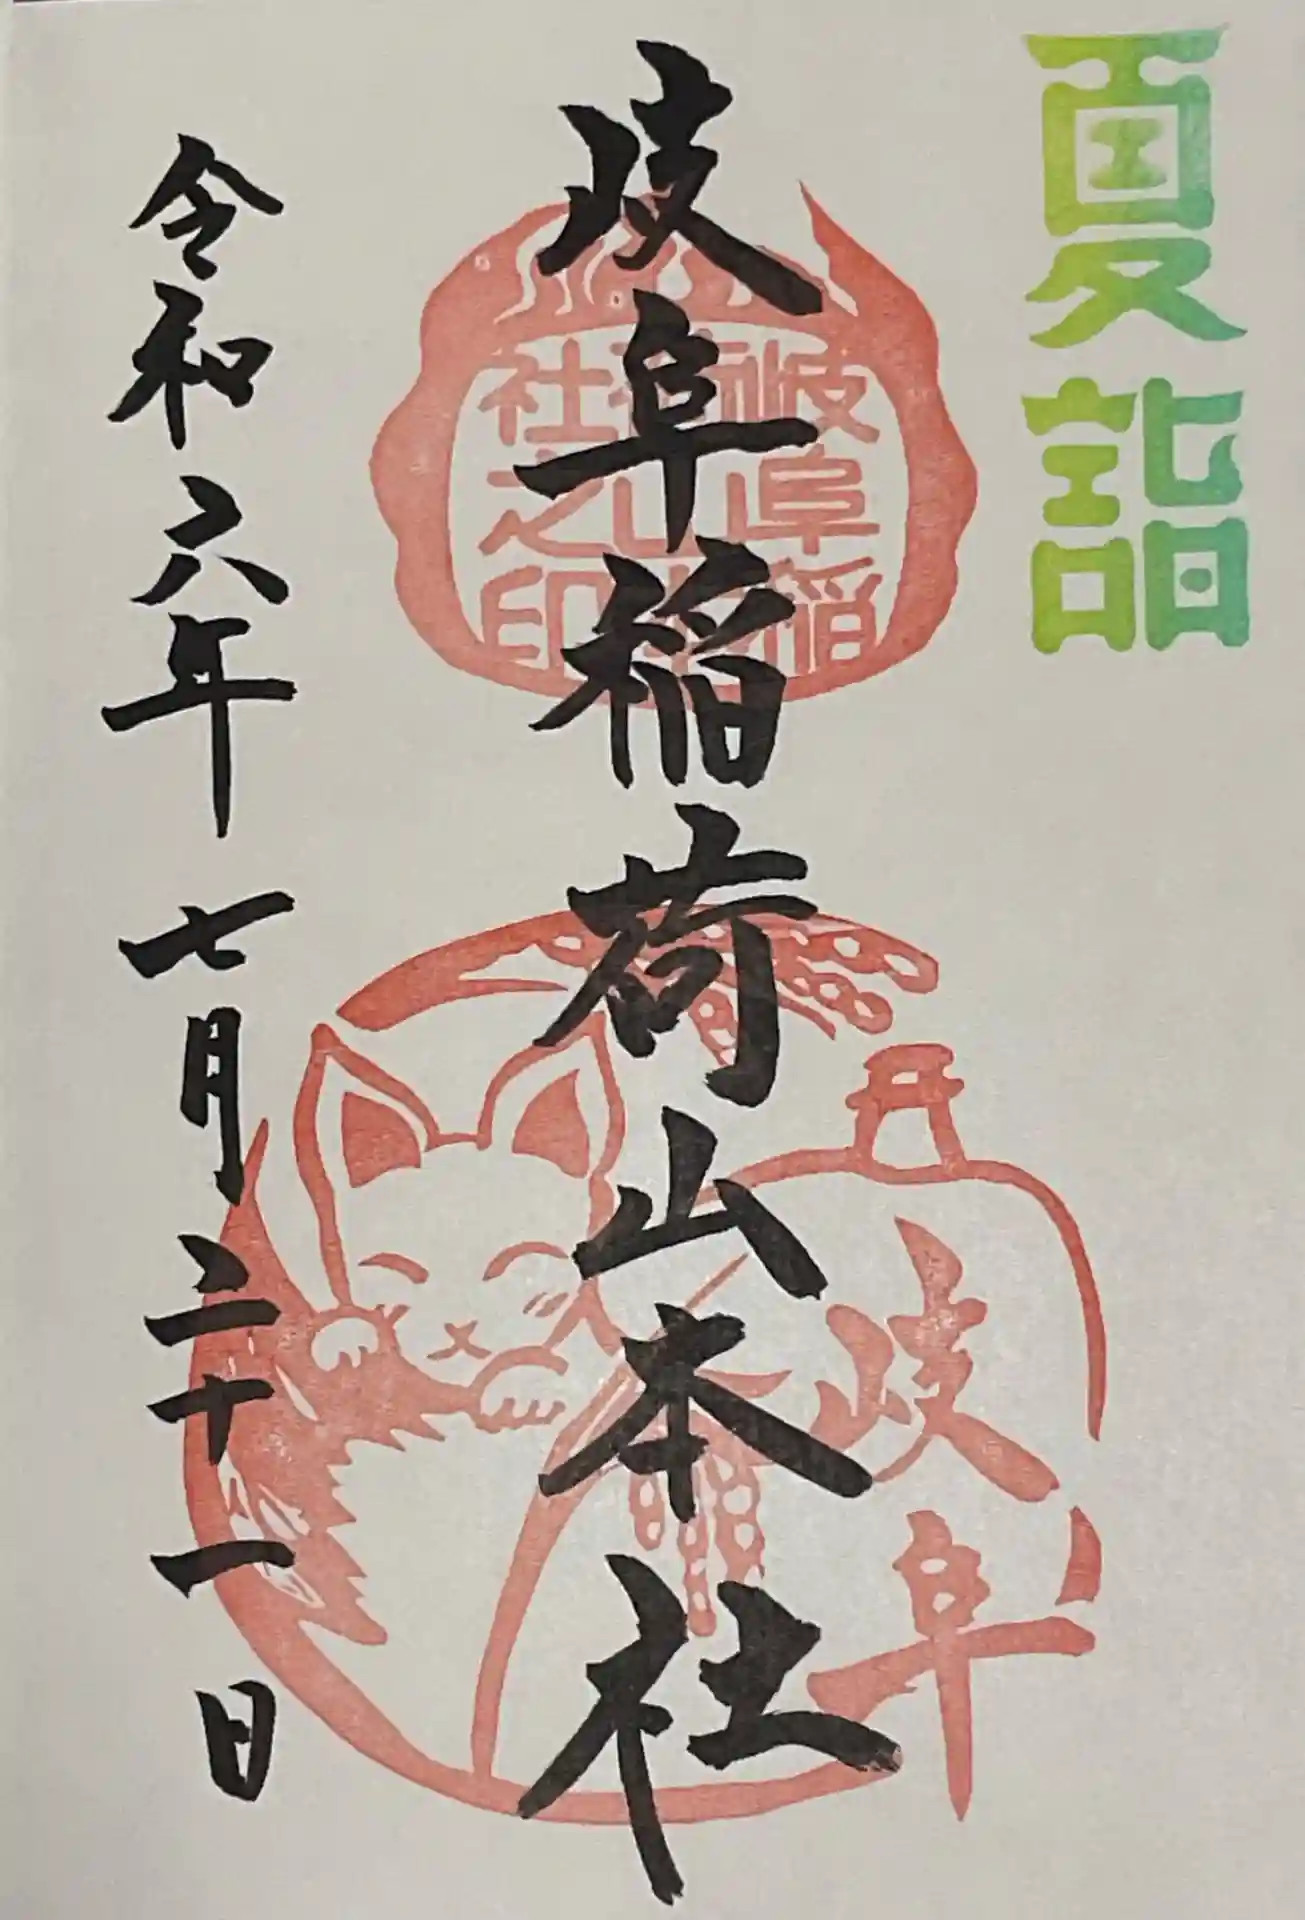 夏詣
岐阜稲荷山本社
岐阜稲
社之印
岐阜
令和六年七月二十一日